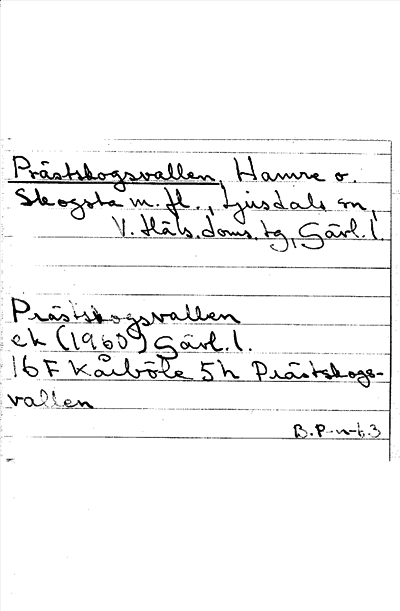 Prästskogsvallen, Hamre o.
Skogsta m. fl., Ljusdals sn,
V. Häls. doms. tg, Gävl. l.
Prästskogsvallen
ek (1960) Gävl. l.
16 F Kårböle 5h Prästskogs-
vallen